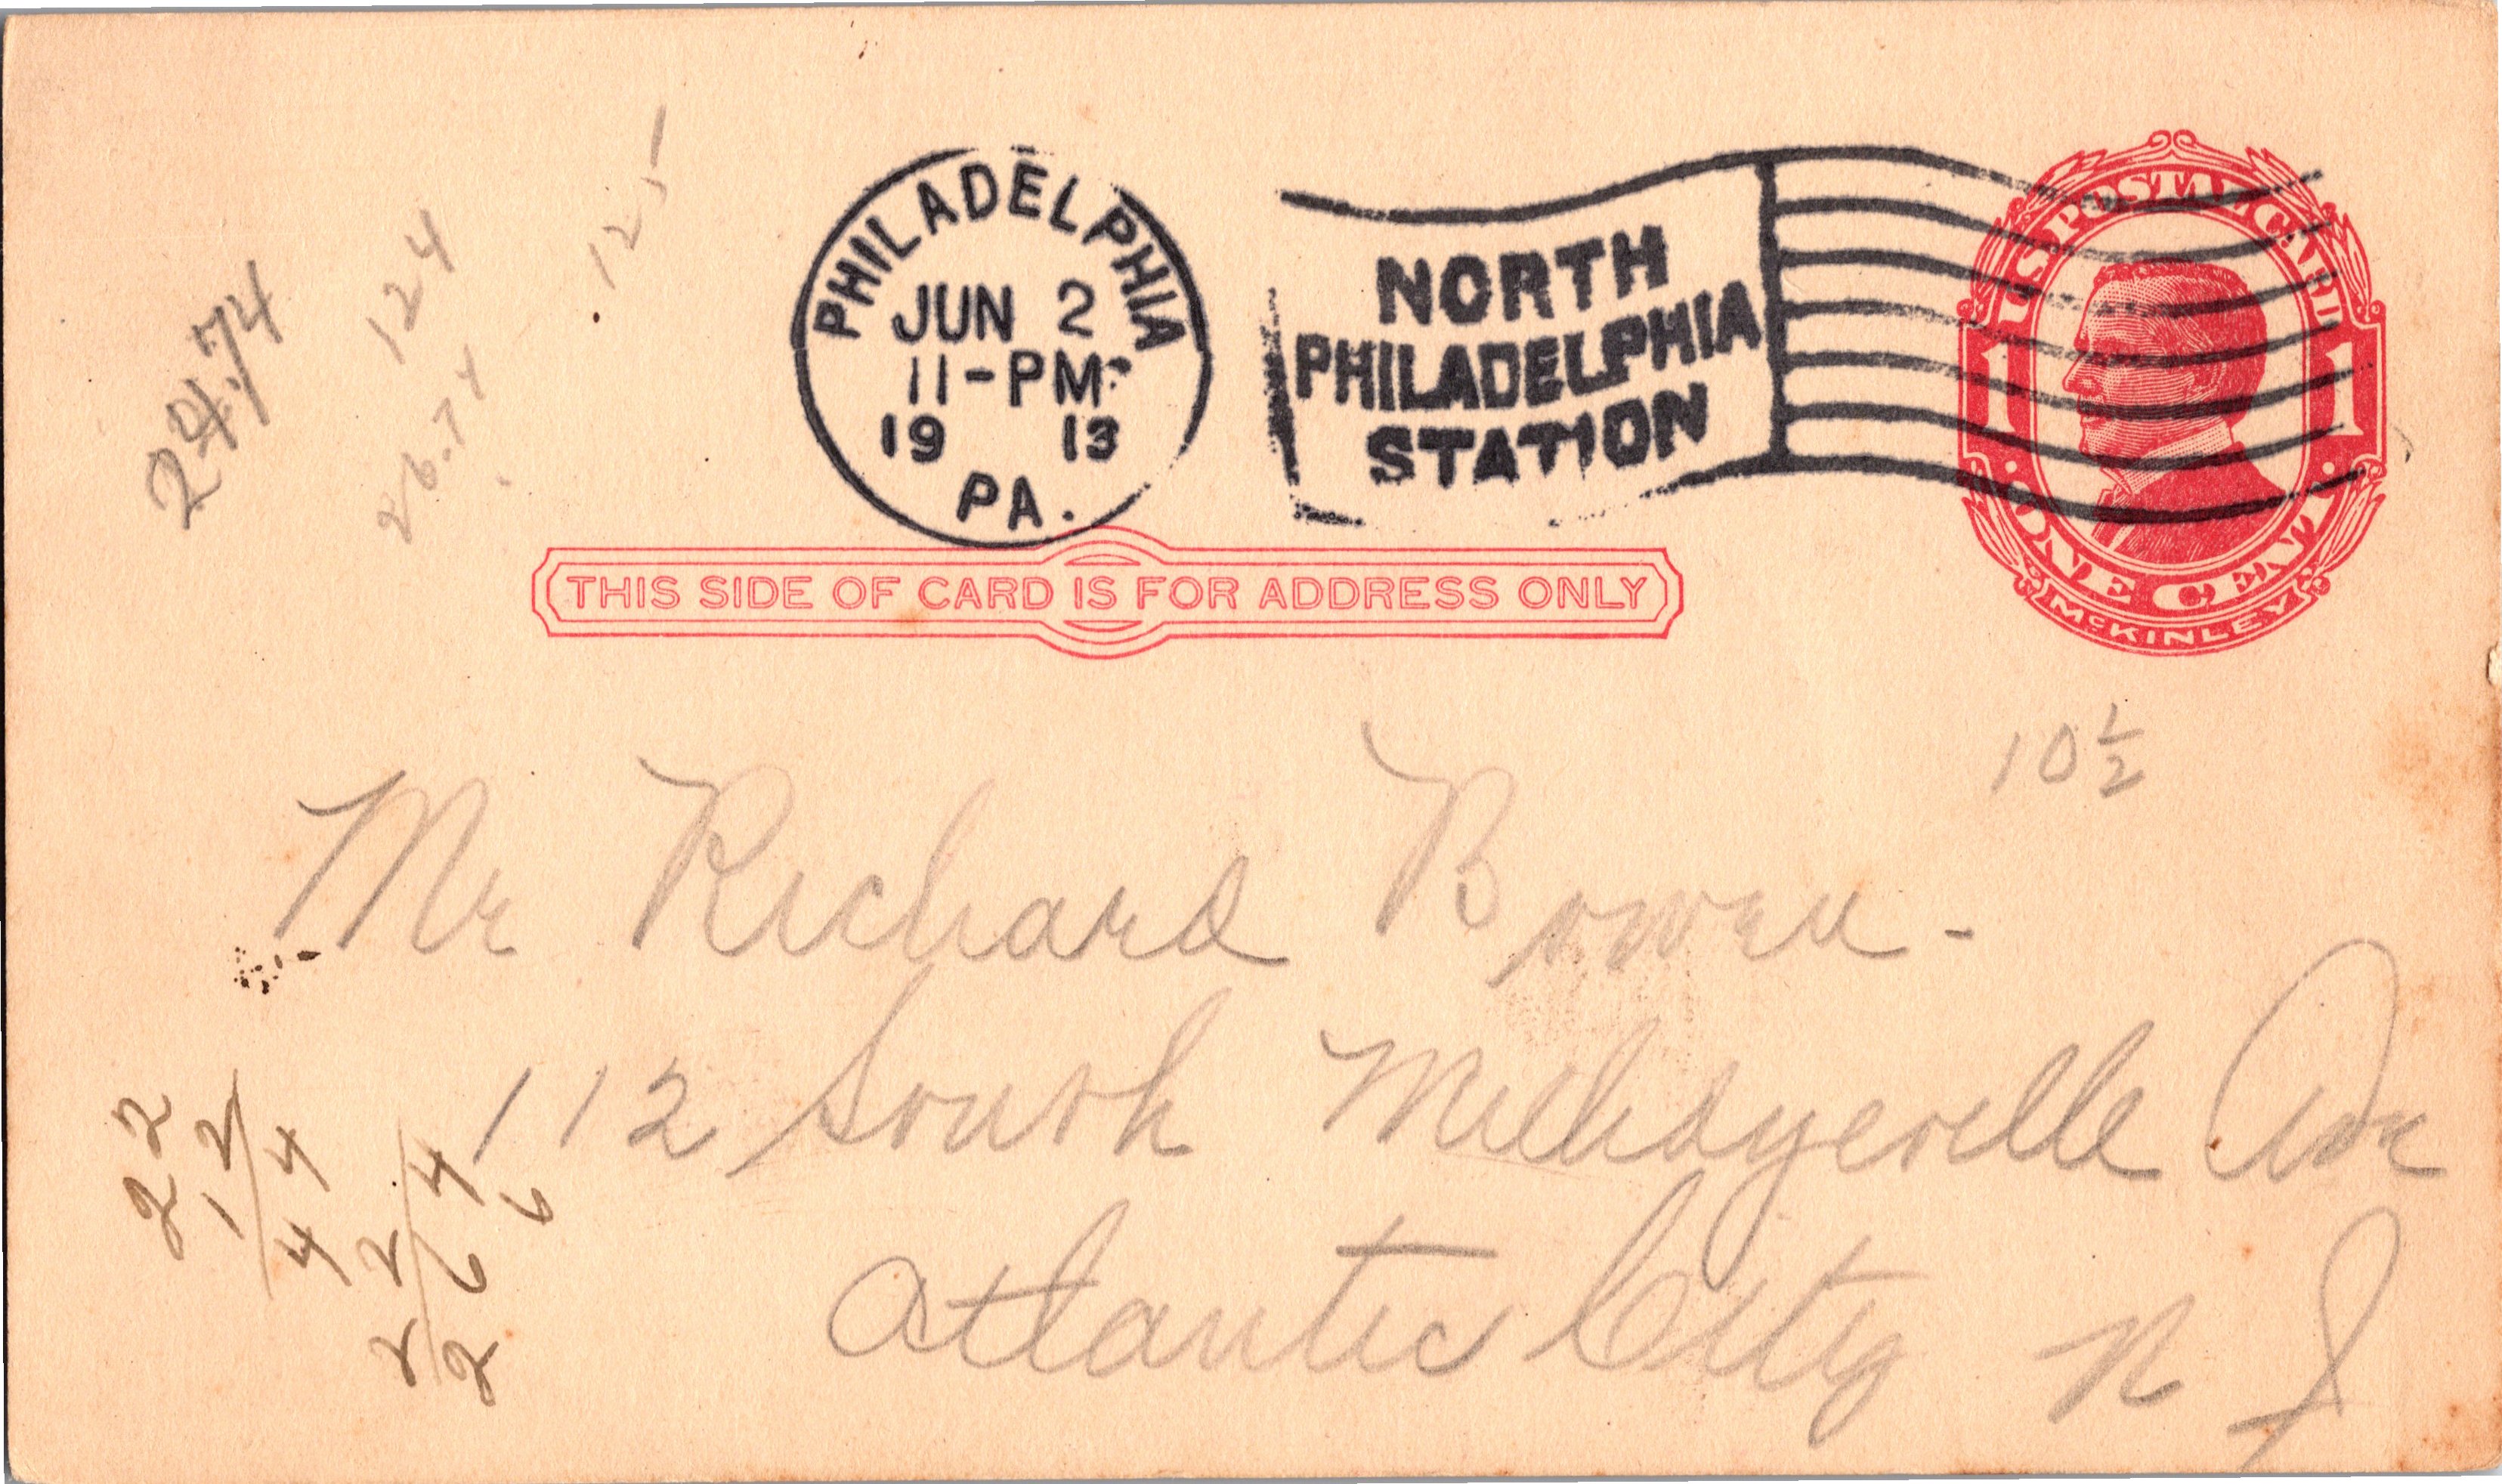 PHILADELPHIA
JUN 2
11-PM
19 13
PA.
NORTH
PHILADELPHIA
STATION
U.S. POSTAL CARD
1 1
ONE CENT
McKINLEY
THIS SIDE OF CARD IS FOR ADDRESS ONLY
2474
124
26.74
125
10 1/2
Mr Richard Bowen -
112 South Ave
Atlantic City N J
22
12
44
22